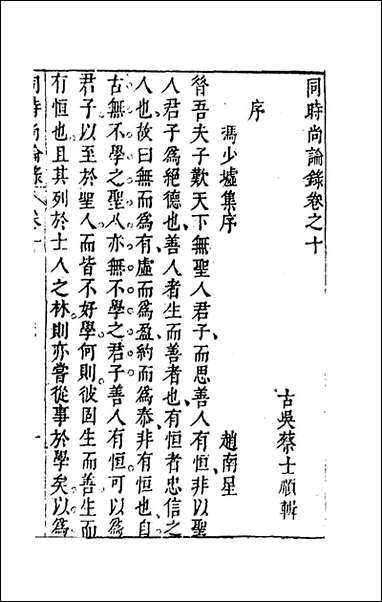 同時尚論錄卷之十
古吳蔡士順輯
序
馮少墟集序
趙南星
昝吾夫子歎天下無聖人君子而思善人有恒非以聖
人君子為絕德也善人者生而善者也有恒者忠信之
人也故曰無而為有虛而為盈約而為泰非有恒也自
古無不學之聖人亦無不學之君子善人有恒可以為
君子以至於聖人而皆不好學何則彼固生而善生而
有恒也且其列於士人之林則亦嘗從事於學矣以為
同時尚論錄 卷十 一